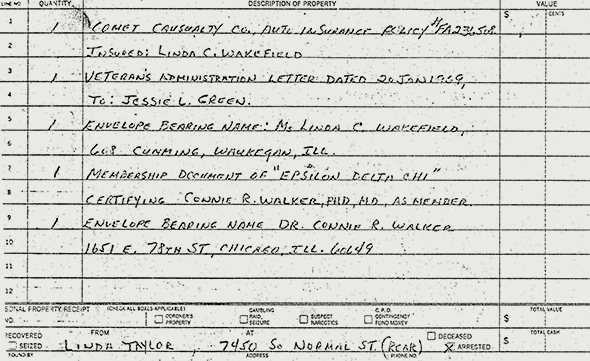 LINE NO QUANTITY DESCRIPTION OF PROPERTY VALUE
$ CENTS
1 1 COMET CAUSUALTY CO., AUTO INSURANCE POLICY
2 INSURED: LINDA C. WAKEFIELD
3 1 VETERANS ADMINISTRATION LETTER DATED 20 JAN 1969,
4 TO: JESSIE L. GREEN.
5 1 ENVELOPE BEARING NAME: Ms LINDA C. WAKEFIELD,
6 608 CUMMING, WAUKEGAN, ILL.
7 1 MEMBERSHIP DOCUMENT OF "EPSILON DELTA CHI"
8 CERTIFYING CONNIE R. WALKER, PHD, MD, AS MEMBER.
9 1 ENVELOPE BEARING NAME DR. CONNIE R. WALKER
10 1651 E. 78TH ST, CHICAGO, ILL. 60649
11
12
SONAL PROPERTY RECEIPT (CHECK ALL BOXES APPLICABLE) CORONER'S PROPERTY GAMBLING RAID, SEIZURE SUSPECT NARCOTICS C.P.D. CONTINGENCY FUND MONEY TOTAL VALUE $
RECOVERED SEIZED FROM AT DECEASED X ARRESTED TOTAL CASH $
LINDA TAYLOR 7450 SO NORMAL ST. (REAR)
FOUND BY ADDRESS PHONE NO.